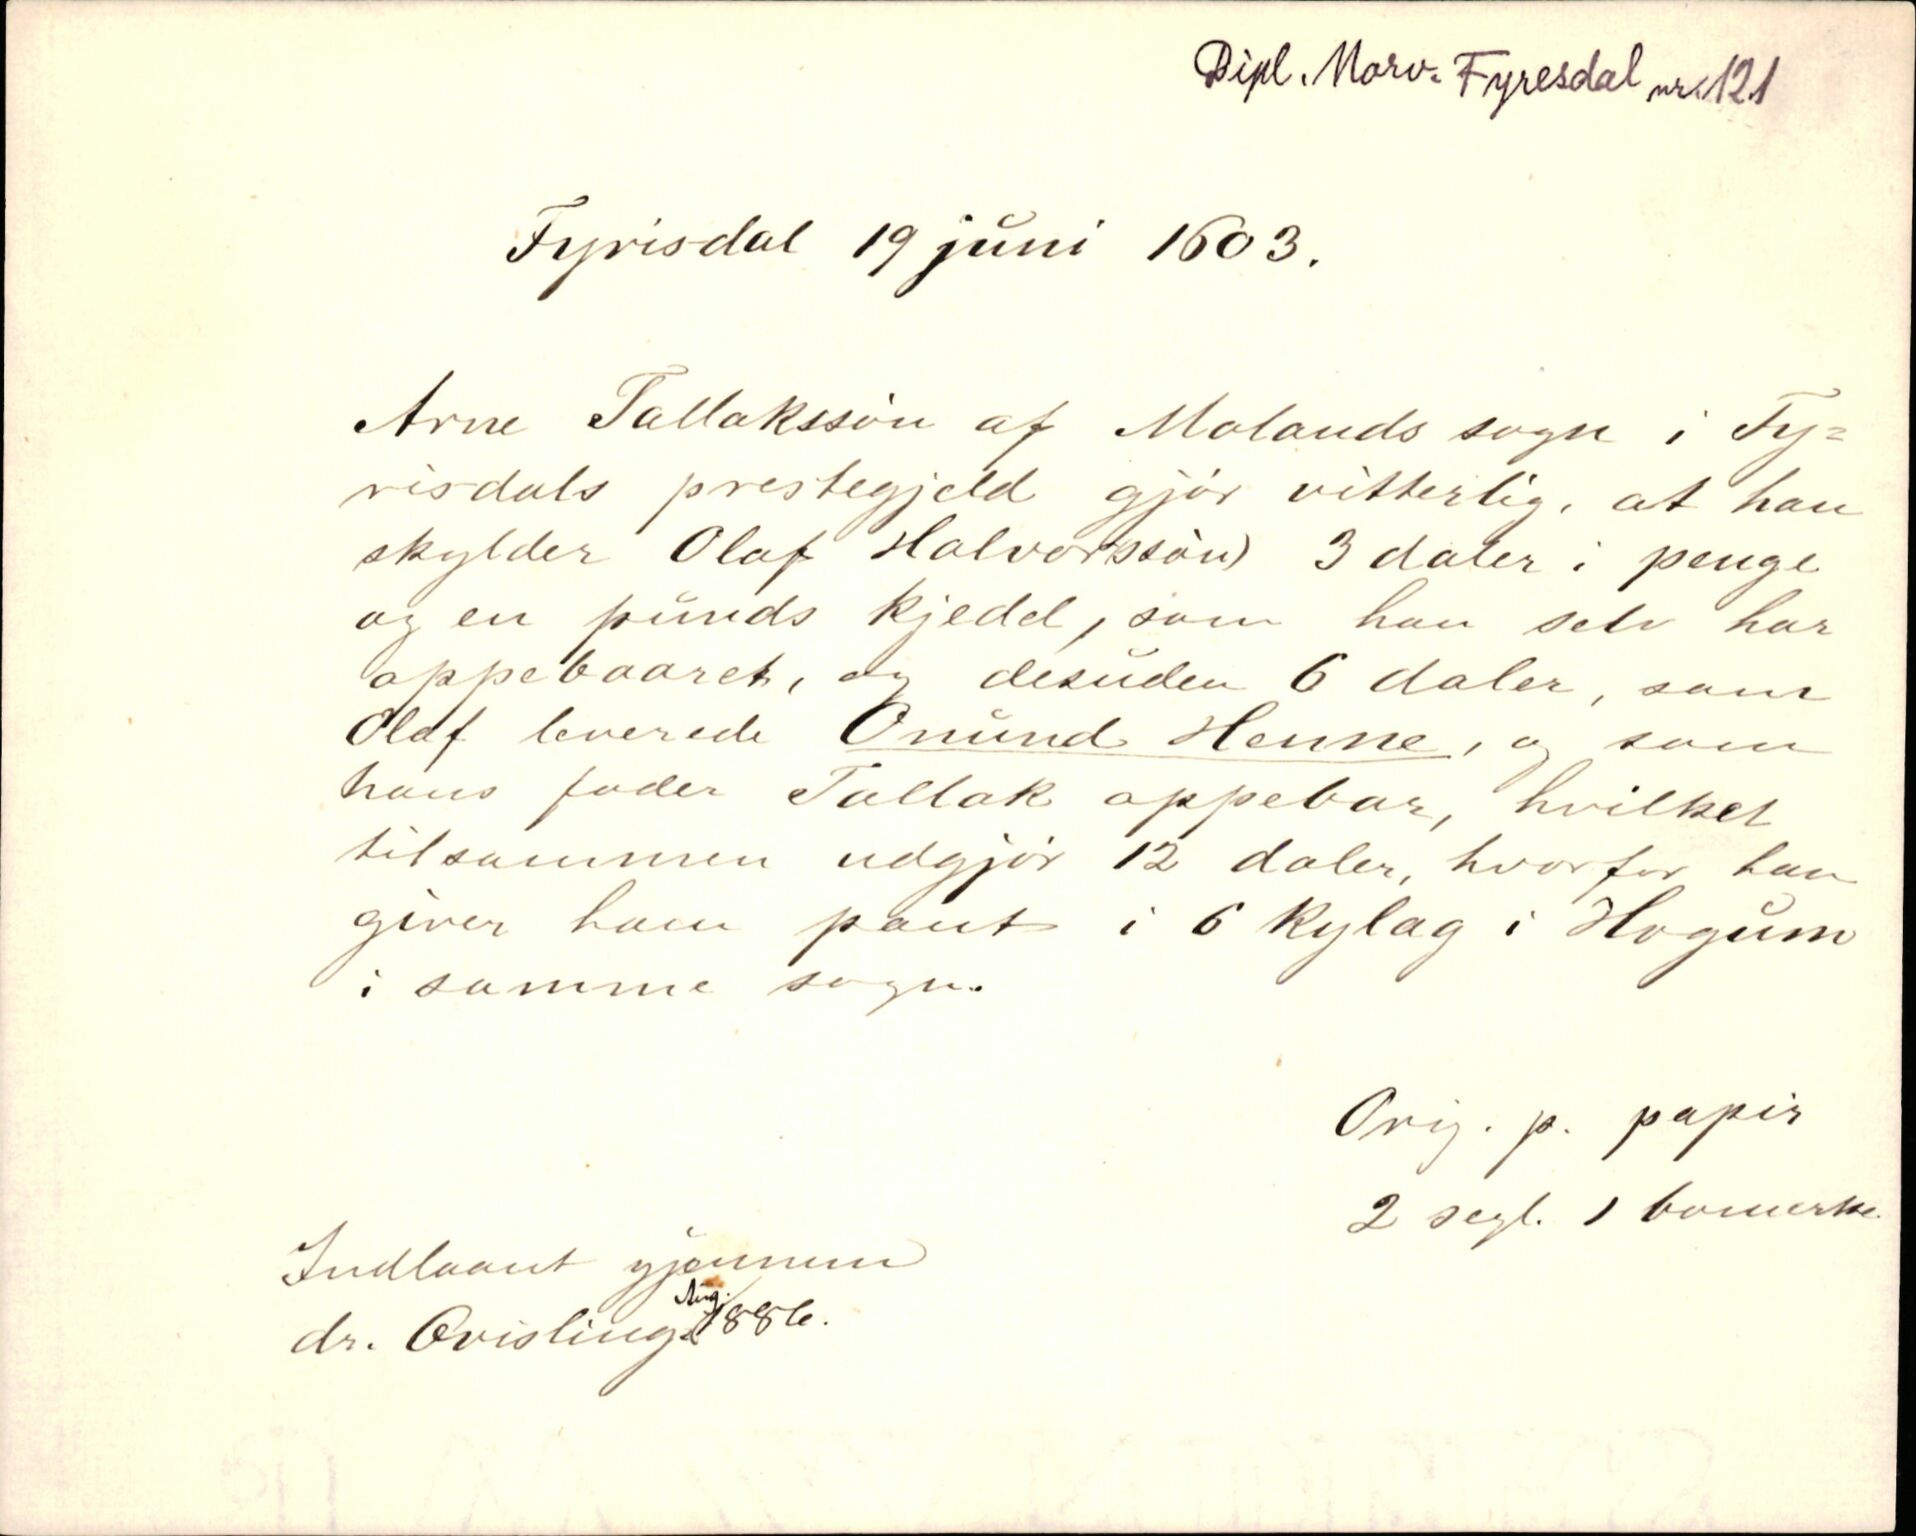 Dipl. Norv. Fyresdal nr. 121
Fyrisdal 19 juni 1603.
Arne Tallakssön af Molands sogn i Fy=
risdals prestegjeld gjör vitterlig, at han
skylder Olaf Halvorssön 3 daler i penge
og en punds kjedel, som han selv har
oppebaaret, og desuden 6 daler, som
Olaf leverede Onund Henne, og som
hans fader Tallak oppebar, hvilket
tilsammen udgjör 12 daler, hvorfor han
giver ham pant i 6 kylag i Hogum
i samme sogn.
Orig. p. papir
2 segl. 1 bomerke.
Indlaant gjennem
dr. Qvisling Aug. 1886.